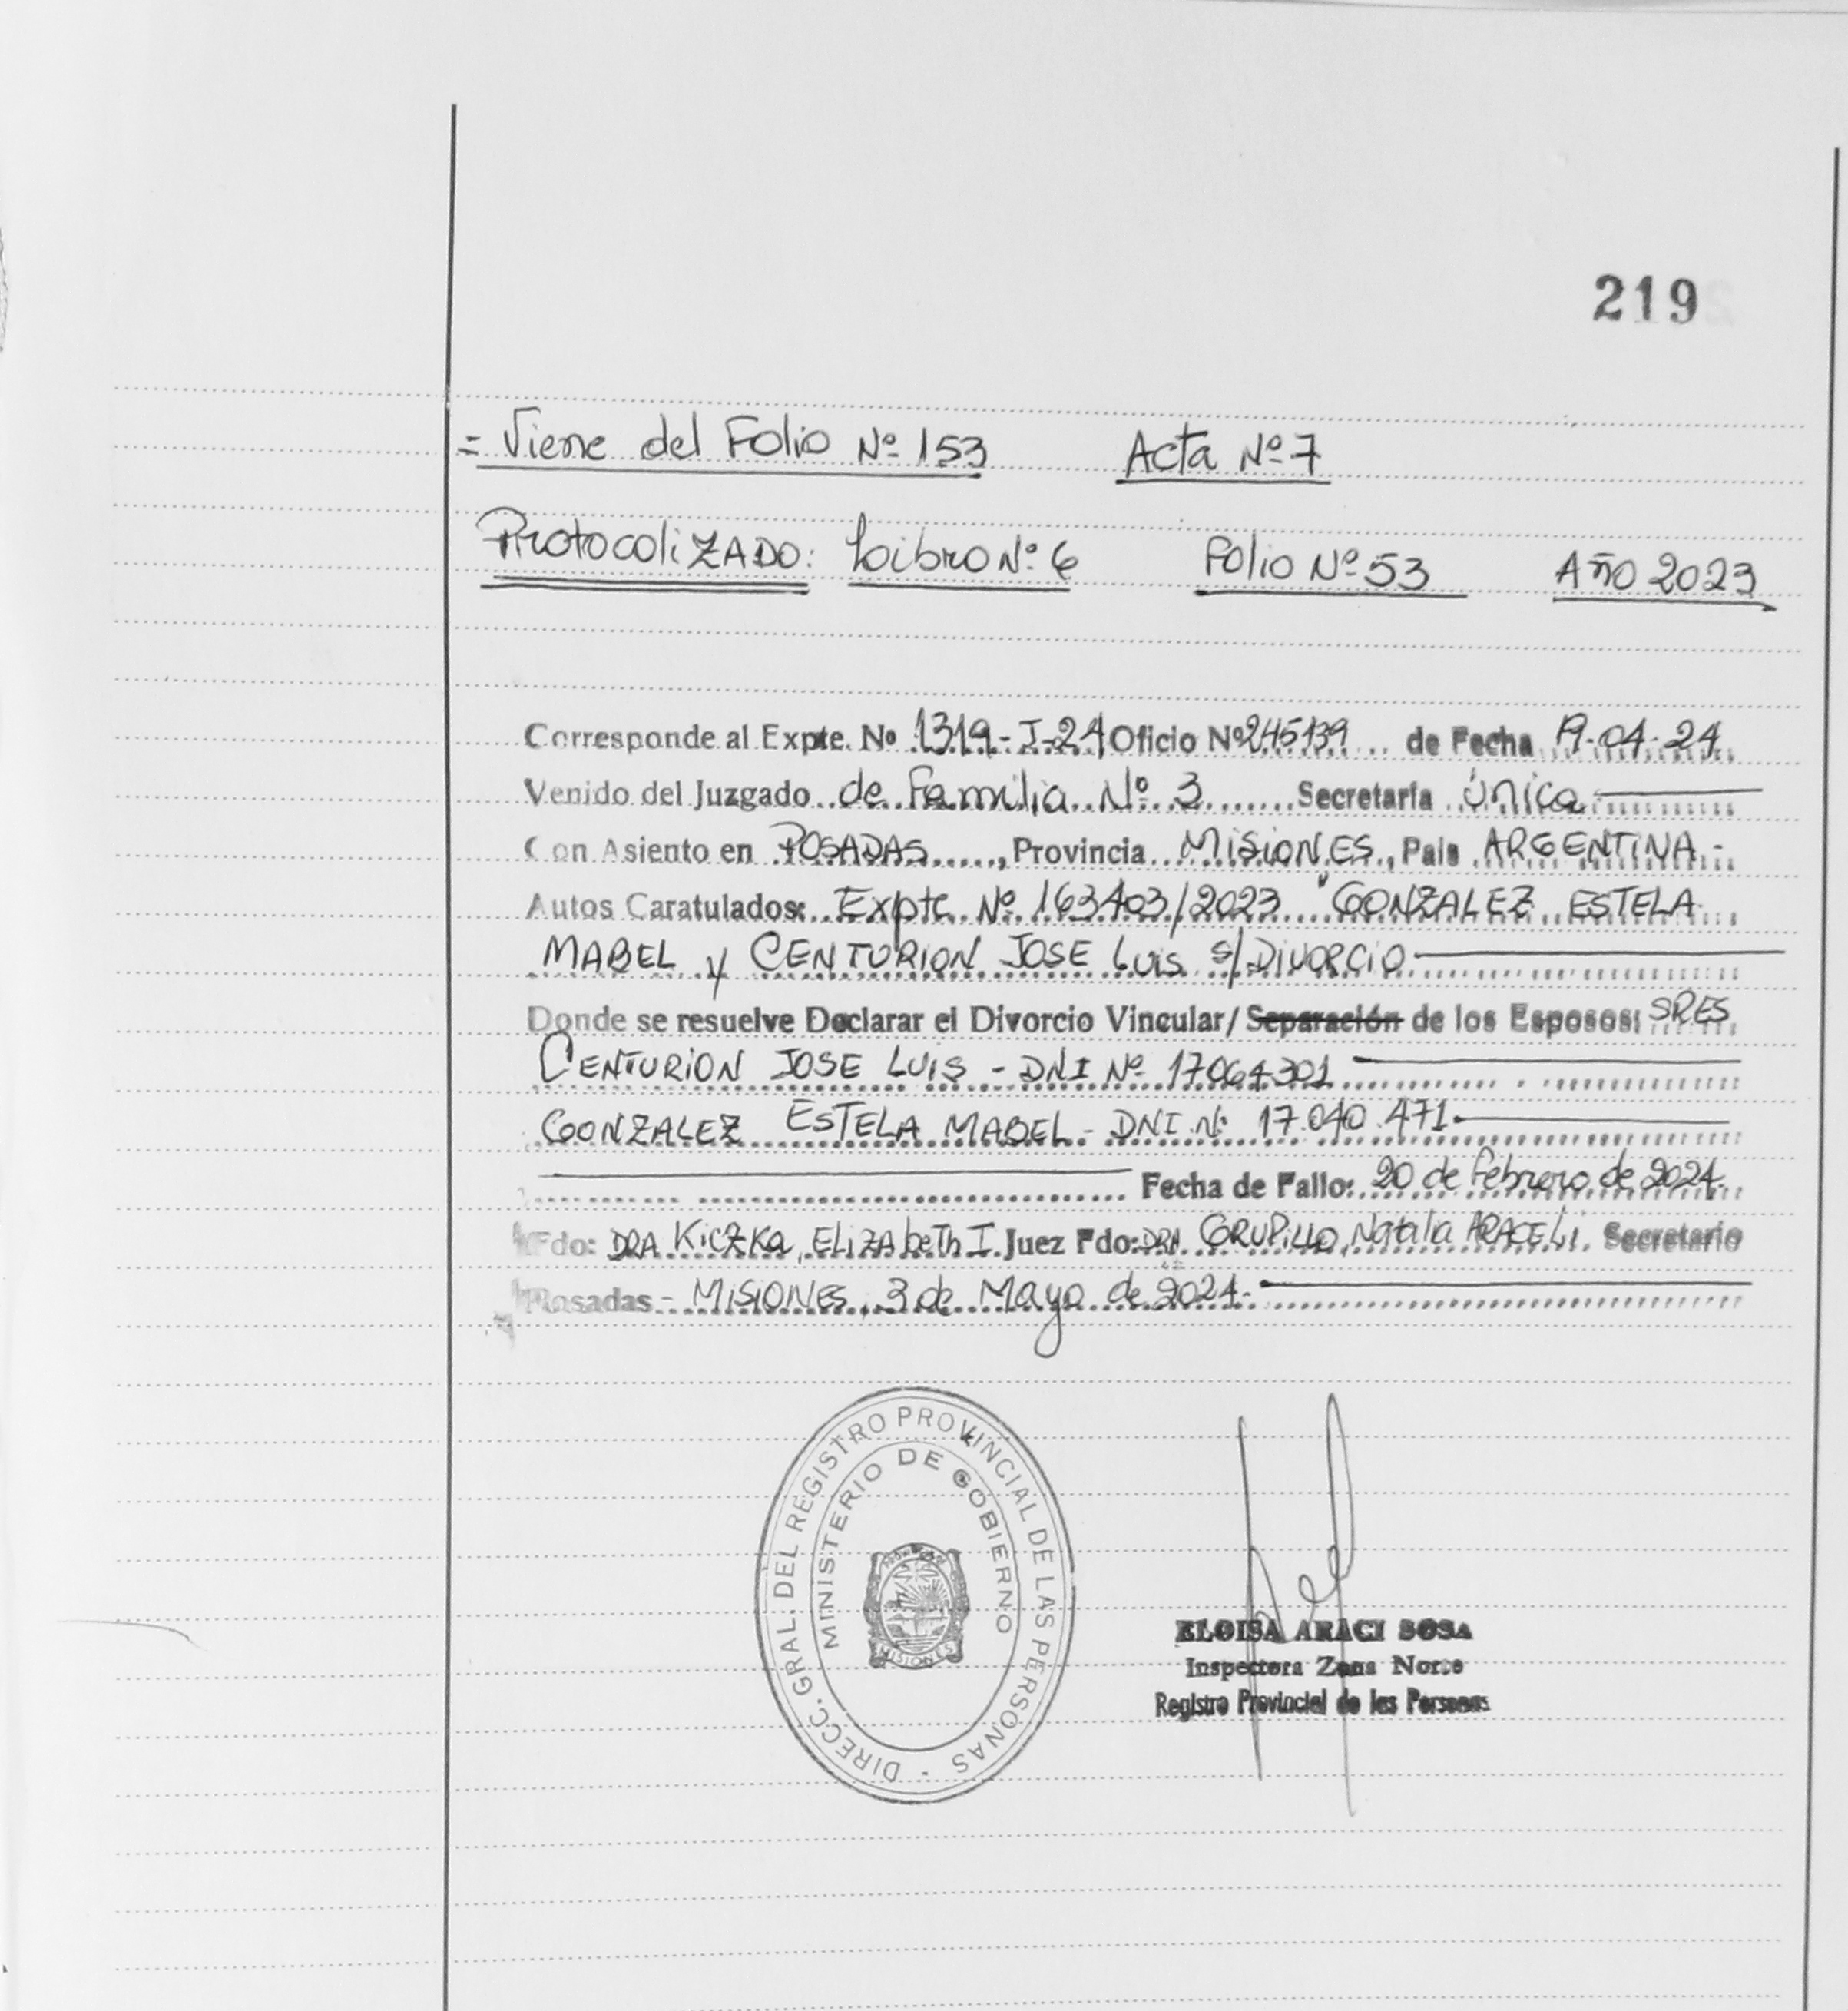 219
= Viene del Folio Nº 153 Acta Nº 7
Protocolizado: Libro Nº 6 Folio Nº 53 Año 2023
Corresponde al Expte. Nº 1319-I-24 Oficio Nº 245139 de Fecha 19-04-24
Venido del Juzgado de Familia Nº 3 Secretaría Única
Con Asiento en POSADAS, Provincia MISIONES, País ARGENTINA -
Autos Caratulados: Expte Nº 163403/2023 "GONZALEZ ESTELA
MABEL y CENTURION JOSE LUIS s/DIVORCIO
Donde se resuelve Declarar el Divorcio Vincular/ Separación de los Esposos: SRES
CENTURION JOSE LUIS - DNI Nº 17064301
GONZALEZ ESTELA MABEL - DNI Nº 17.040.471.
Fecha de Fallo: 20 de febrero de 2024.
Fdo: DRA KICZKA, ELIZABETH I Juez Fdo: DRA GRUPILLO, Natalia ARACELI. Secretario
Posadas - MISIONES, 3 de Mayo de 2024.
DIRECC. GRAL. DEL REGISTRO PROVINCIAL DE LAS PERSONAS
MINISTERIO DE GOBIERNO
MISIONES
ELOISA ARACI SOSA
Inspectora Zona Norte
Registro Provincial de las Personas